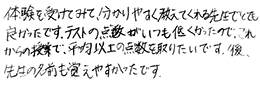 体験を受けてみて、分かりやすく教えてくれる先生でとても
良かったです。テストの点数がいつも低くかったので、これ
からの授業で、平均以上の点数を取りたいです。後、
先生の名前も覚えやすかったです。